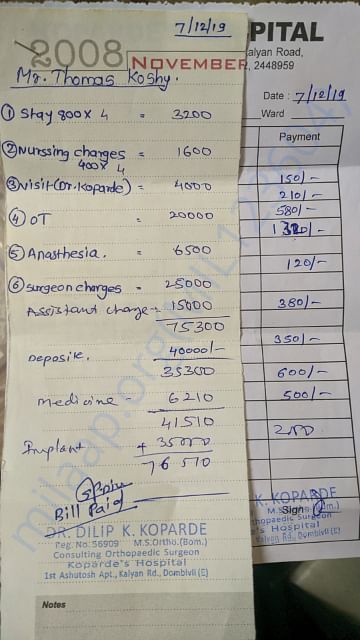 7/12/19
2008 NOVEMBER
Mr. Thomas Koshy.
① Stay 800 x 4 = 3200
② Nurssing charges = 1600
400 x 4
③ Visit (Dr. Koparde) = 4000
④ OT = 20000
⑤ Anasthesia. = 6500
⑥ Surgeon charges = 25000
Assistant charge = 15000
75300
Deposite. 40000/-
35300
medicine 6210
41510
Implant + 35000
76510
Bill Paid
DR. DILIP K. KOPARDE
Reg. No. 56909 M.S.Ortho.(Bom.)
Consulting Orthopaedic Surgeon
Koparde's Hospital
1st Ashutosh Apt., Kalyan Rd., Dombivli (E)
Notes
PITAL
alyan Road,
, 2448959
Date : 7/12/19
Ward
Payment
150/-
210/-
580/-
120/-
380/-
350/-
600/-
500/-
200
K. KOPARDE
M.S.
Sign
thopaedic Surgeon
e's Hospital
Kalyan Rd., Dombivli (E)
milaap.org